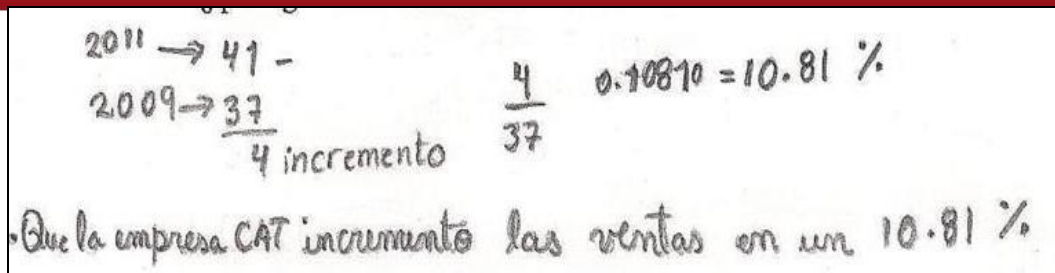 2011 → 41 -
2009 → 37
4 incremento
4
37
0.10810 = 10.81 %
• Que la empresa CAT incrementó las ventas en un 10.81 %